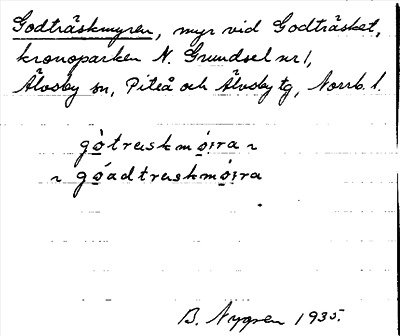 Godträskmyren, myr vid Godträsket,
kronoparken N. Grundsel nr 1,
Älvsby sn, Piteå och Älvsby tg, Norrb. l.
gòtrœskmóɪra ~
~ góadtrœskmóɪra
B. Nygren 1935.